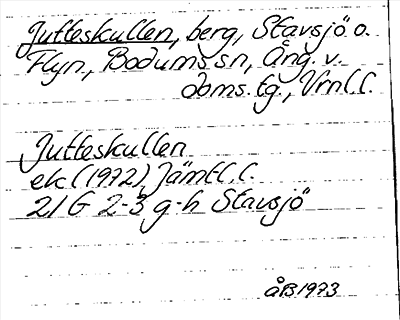 Jutteskullen, berg, Stavsjö o.
Flyn., Bodums sn, Ång. v.
doms. tg., Vrnl. l.
Jutteskullen
ek (1972), Jämtl. l.
21 G 2-3 g-h Stavsjö
åB 1973